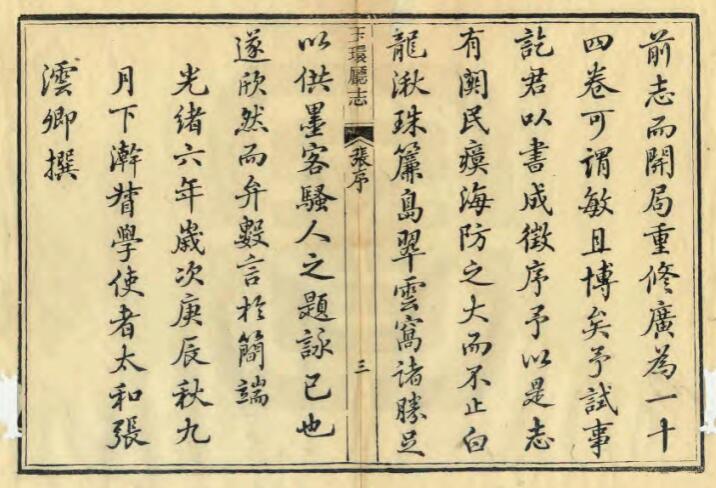 前志而開局重修廣為一十
四卷可謂敏且博矣予試事
訖君以書成徵序予以是志
有闗民瘼海防之大而不止白
龍湫珠簾島翠雲窩諸勝足
玉環廳志
張序
三
以供墨客騷人之題詠已也
遂欣然而弁數言於簡端
光緒六年歲次庚辰秋九
月下澣督學使者太和張
澐卿撰